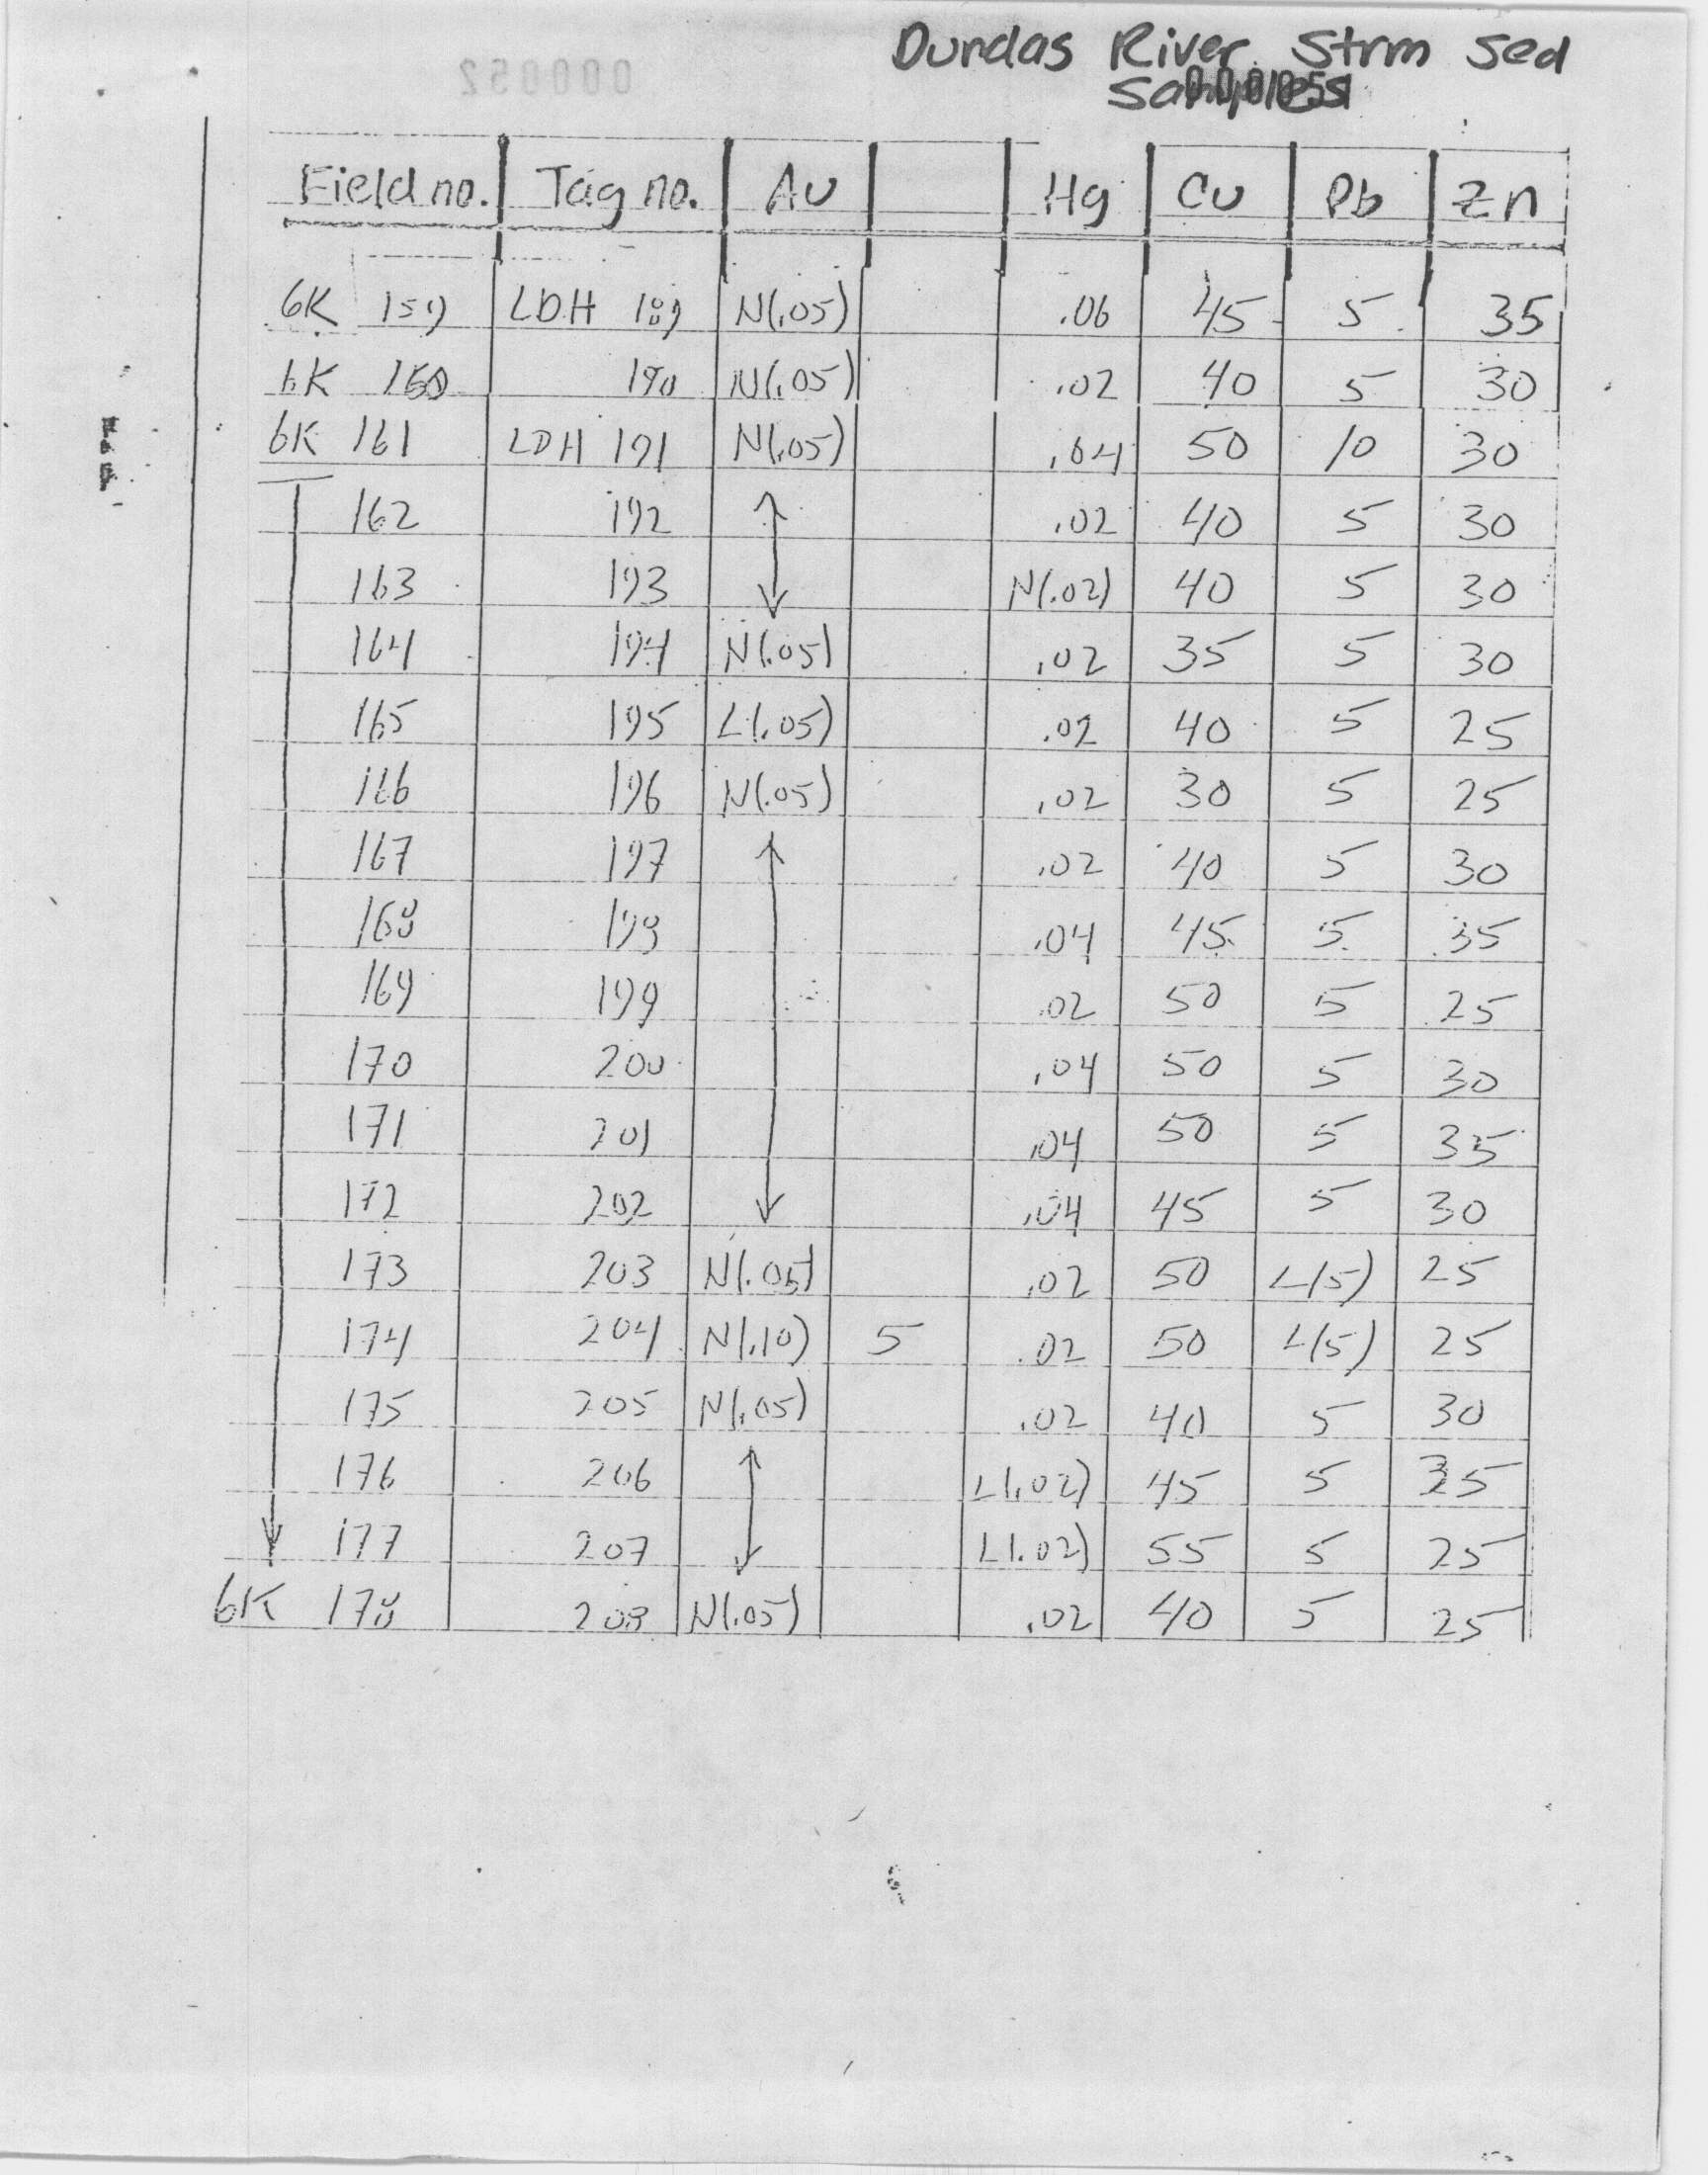 Dundas River Strm Sed
Samples
000052
Field no. Tag no. Au Hg Cu Pb Zn
6K 159 LDH 189 N(.05) .06 45 5 35
6K 160 190 N(.05) .02 40 5 30
6K 161 LDH 191 N(.05) .04 50 10 30
162 192 .02 40 5 30
163 193 N(.02) 40 5 30
164 194 N(.05) .02 35 5 30
165 195 L(.05) .02 40 5 25
166 196 N(.05) .02 30 5 25
167 197 .02 40 5 30
168 198 .04 45 5 35
169 199 .02 50 5 25
170 200 .04 50 5 30
171 201 .04 50 5 35
172 202 .04 45 5 30
173 203 N(.05) .02 50 L(5) 25
174 204 N(.10) 5 .02 50 L(5) 25
175 205 N(.05) .02 40 5 30
176 206 L(.02) 45 5 35
177 207 L(.02) 55 5 25
6K 178 208 N(.05) .02 40 5 25